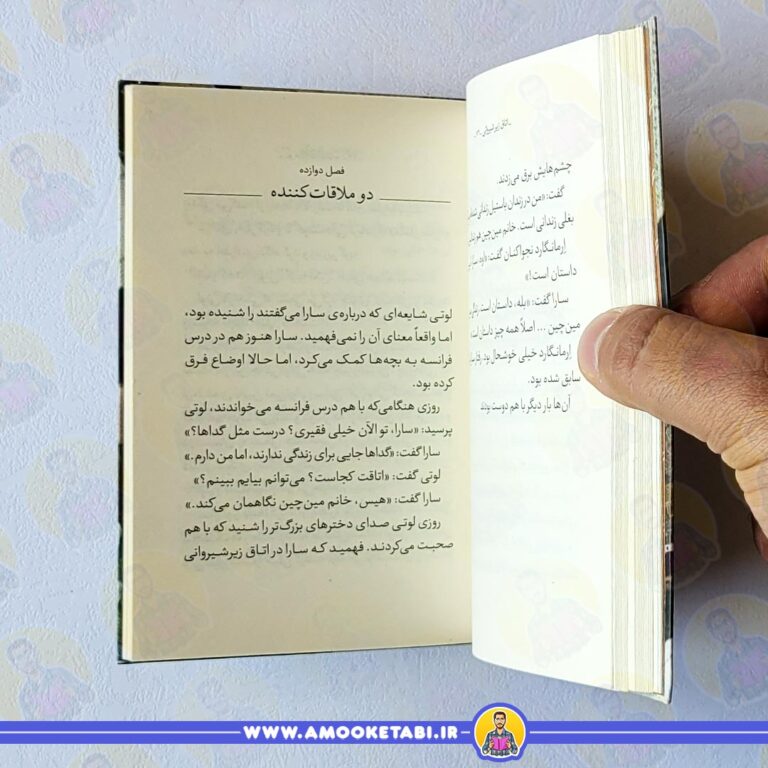 اتاق زیر شیروانی
چشم‌هایش برق می‌زدند.
گفت: «من در زندان باستیل زندانی
بغلی زندانی است. خانم مین‌چین هم
اِرمانگارد نجواکنان گفت: «اوه،
داستان است!»
سارا گفت: «بله، داستان است.
مین‌چین ... اصلاً همه چیز داستان
اِرمانگارد خیلی خوشحال بود.
سابق شده بود.
آن‌ها بار دیگر با هم دوست بودند
فصل دوازده
دو ملاقات‌کننده
لوتی شایعه‌ای که درباره‌ی سارا می‌گفتند را شنیده بود،
اما واقعاً معنای آن را نمی‌فهمید. سارا هنوز هم در درس
فرانسه به بچه‌ها کمک می‌کرد، اما حالا اوضاع فرق
کرده بود.
روزی هنگامی‌که با هم درس فرانسه می‌خواندند، لوتی
پرسید: «سارا، تو الآن خیلی فقیری؟ درست مثل گداها؟»
سارا گفت: «گداها جایی برای زندگی ندارند، اما من دارم.»
لوتی گفت: «اتاقت کجاست؟ می‌توانم بیایم ببینم؟»
سارا گفت: «هیس، خانم مین‌چین نگاهمان می‌کند.»
روزی لوتی صدای دخترهای بزرگ‌تر را شنید که با هم
صحبت می‌کردند. فهمید که سارا در اتاق زیرشیروانی
WWW.AMOOKETABI.IR